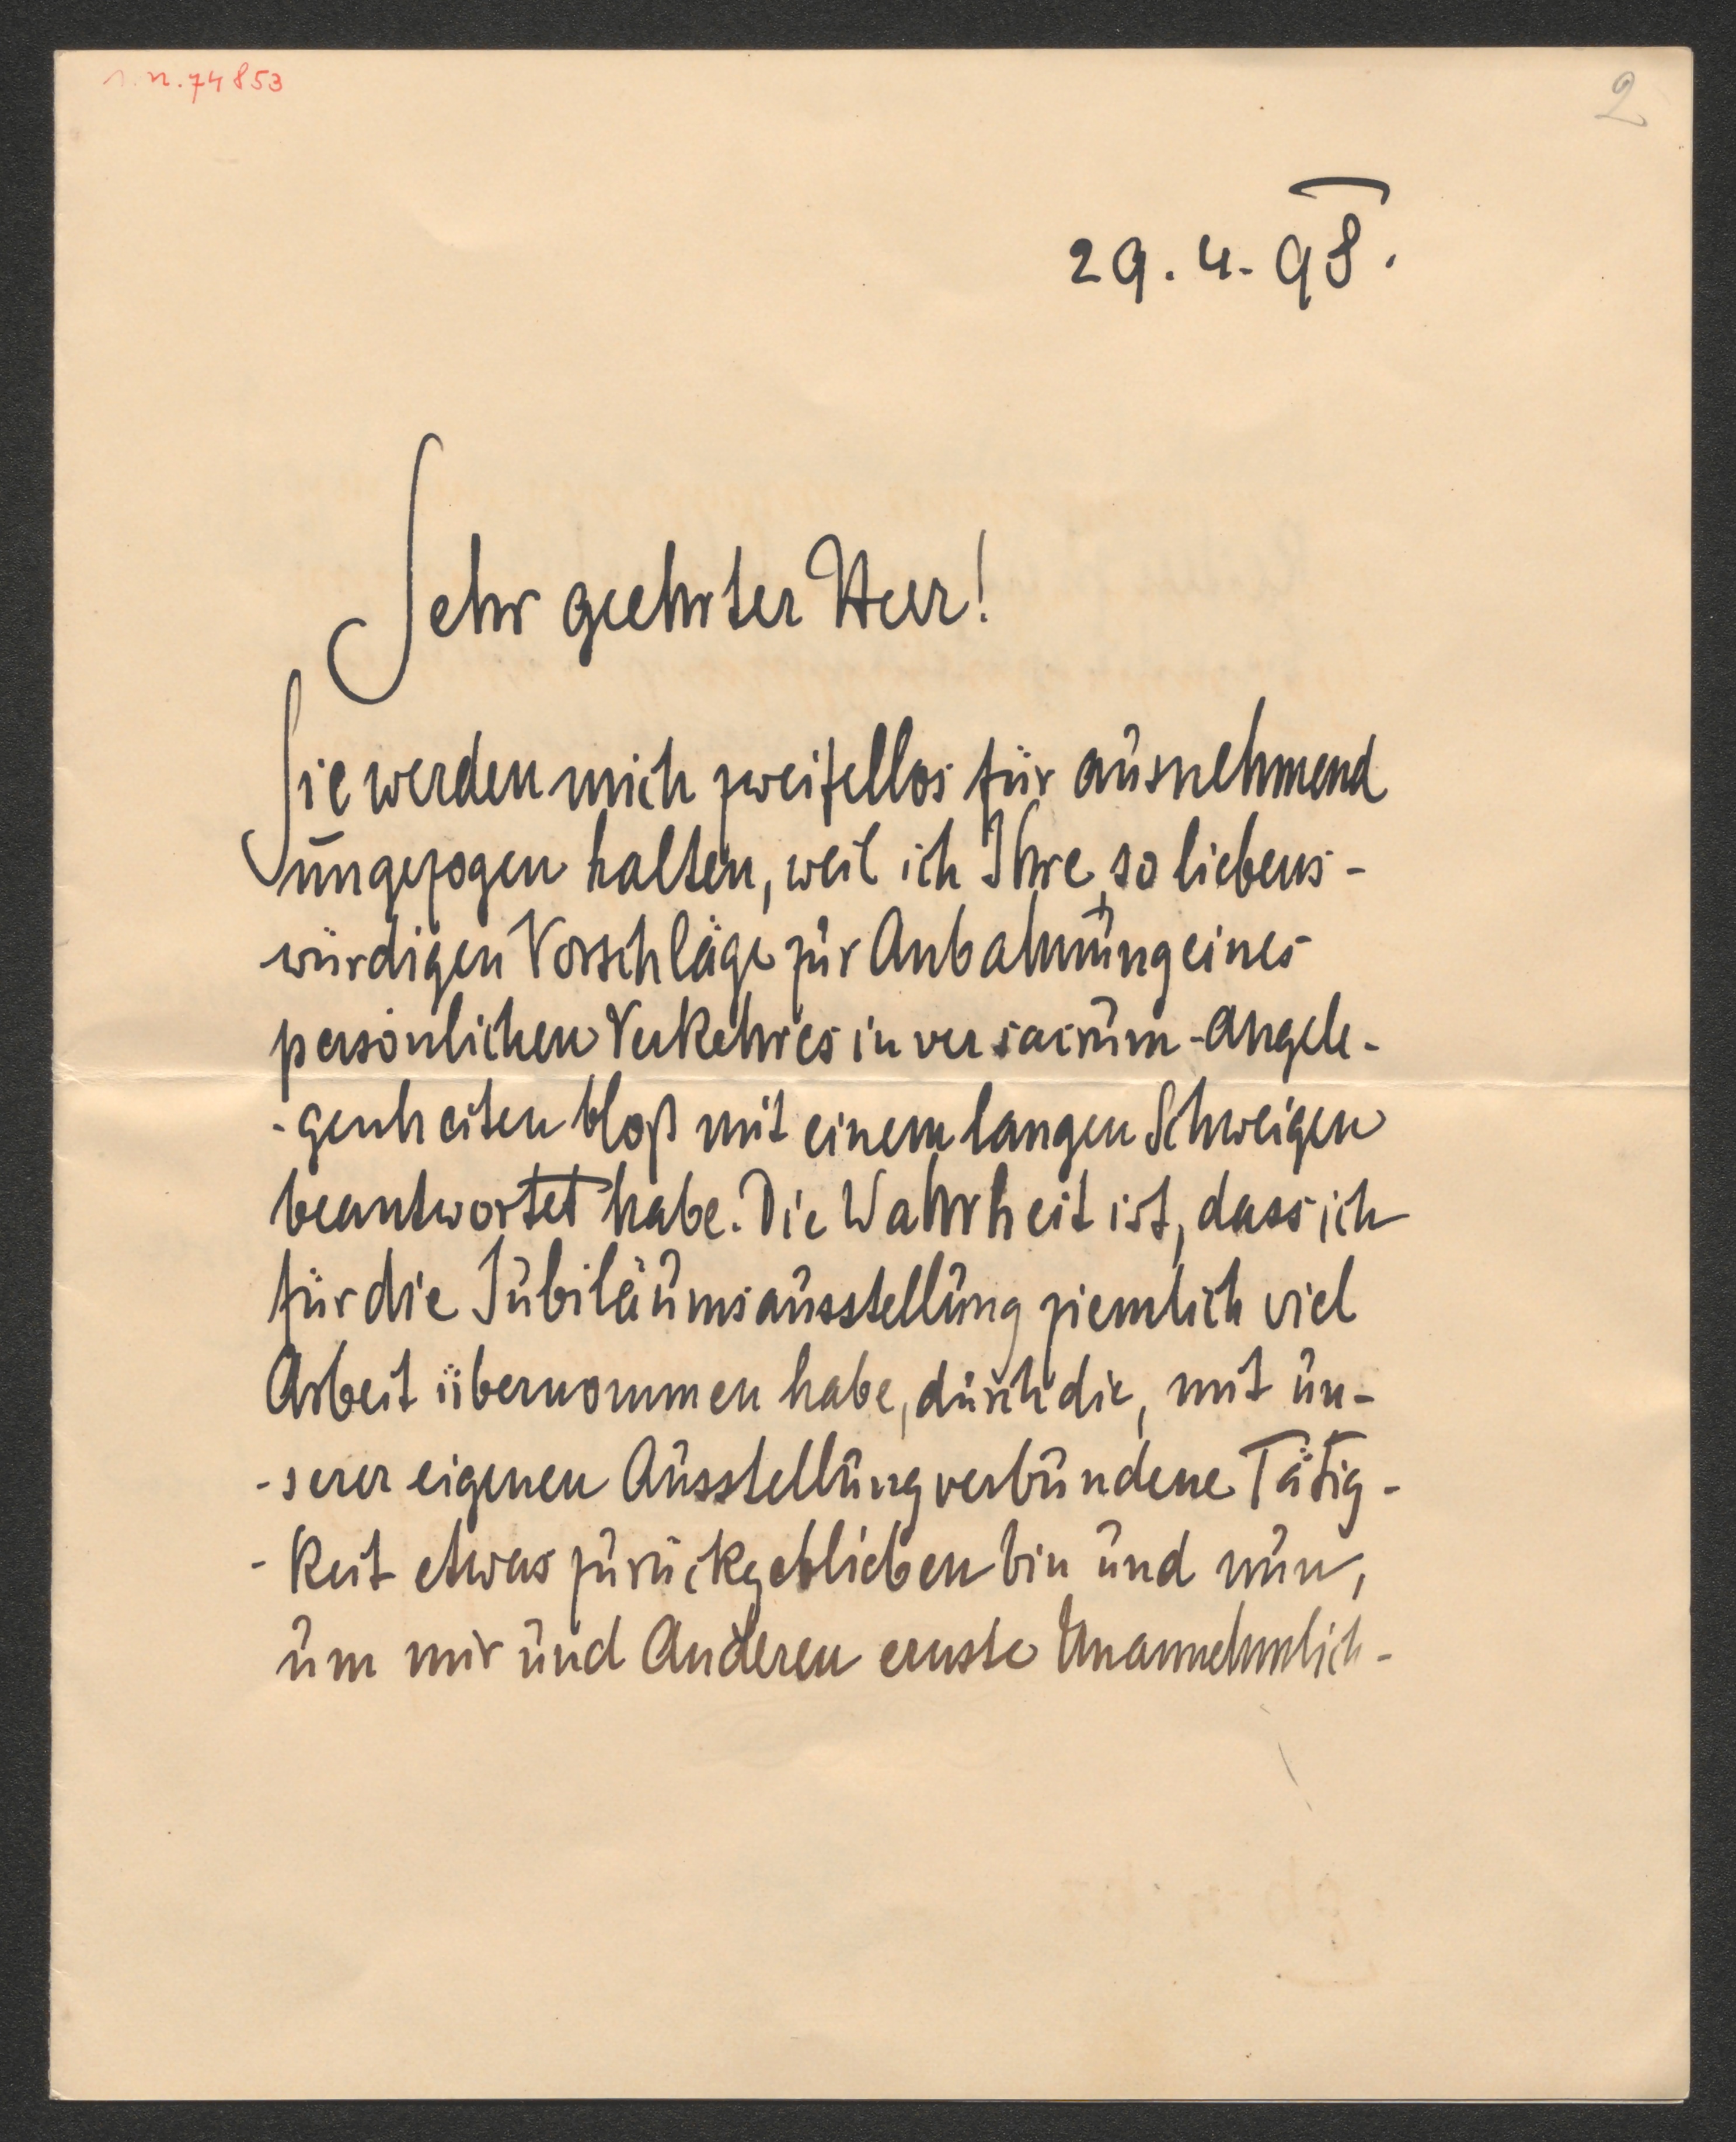 I. N. 74853
2
29. 4. 98.
Sehr geehrter Herr!
Sie werden mich zweifellos für ausnehmend
ungezogen halten, weil ich Ihre, so liebens-
würdigen Vorschläge zur Anbahnung eines
persönlichen Verkehres in ver sacrum-Angele-
-genheiten bloß mit einem langen Schweigen
beantwortet habe. Die Wahrheit ist, dass ich
für die Jubiläumsausstellung ziemlich viel
Arbeit übernommen habe, durch die, mit un-
-serer eigenen Ausstellung verbundene Tätig-
-keit etwas zurückgeblieben bin und nun,
um mir und Anderen ernste Unannehmlich-